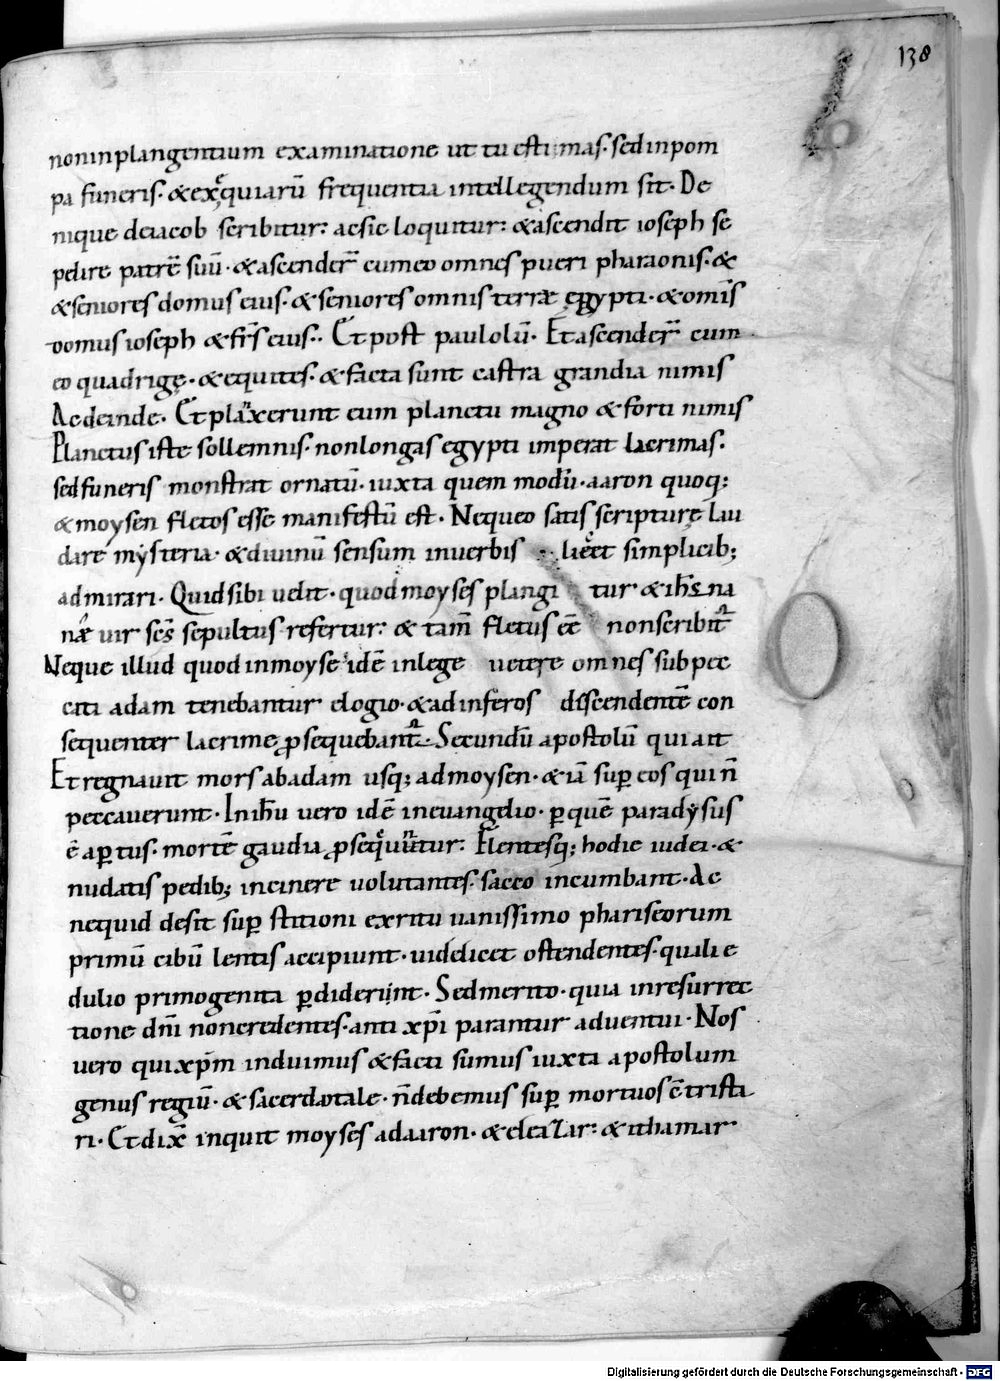 138
non in plangentium examinatione ut tu estimas. sed in pom
pa funeris. & exequiarū frequentia intellegendum sit. De
nique de iacob scribitur: ac sic loquitur: & ascendit ioseph se
pelire patrē suū. & ascender̄ cum eo omnes pueri pharaonis. &
& seniores domus eius. & seniores omnis terræ ęgypti. & om̄is
domus ioseph & fr̄s eius. Et post paulolū. Et ascender̄ cum
eo quadrigę. & equites. & facta sunt castra grandia nimis
Ac deinde. Et planxerunt eum planctu magno & forti nimis
Planctus iste sollemnis. non longas egypti imperat lacrimas.
sed funeris monstrat ornatū. iuxta quem modū. aaron quoq;
& moysen fletos esse manifestū est. Nequeo satis scripturę lau
dare mysteria. & diuinū sensum in uerbis licet simplicib;
admirari. Quid sibi uelit. quod moyses plangitur & ih̄s na
uæ uir sc̄s sepultus refertur: & tam̄ fletus eē non scribit̄
Neque illud quod in moyse idē in lege uetere omnes sub pec
cati adam tenebantur elogio. & ad inferos discendentē con
sequenter lacrime ꝓsequebant̄. Secundū apostolū qui ait
Et regnauit mors ab adam usq; ad moysen. & iā suꝑ eos qui n̄
peccauerunt. In ih̄u uero idē in euangelio. ꝑ quē paradysus
ē aꝑtus. mortē gaudia ꝓsequuntur. Flentesq; hodie iudei. &
nudatis pedib; in cinere uolutantes. sacco incumbant. Ac
nequid desit suꝑstitioni ex ritu uanissimo phariseorum
primū cibū lentis accipiunt. uidelicet ostendentes. quali e
dulio primogenita ꝑdiderunt. Sed merito. quia in resurrec
tione dn̄i non credentes. anti xp̄i parantur aduentui. Nos
uero qui xp̄m induimus & facti sumus iuxta apostolum
genus regiū. & sacerdotale. n̄ debemus suꝑ mortuos c̄trista
ri. Et dix̄ inquit moyses ad aaron. & eleazar: & ithamar
Digitalisierung gefördert durch die Deutsche Forschungsgemeinschaft - DFG